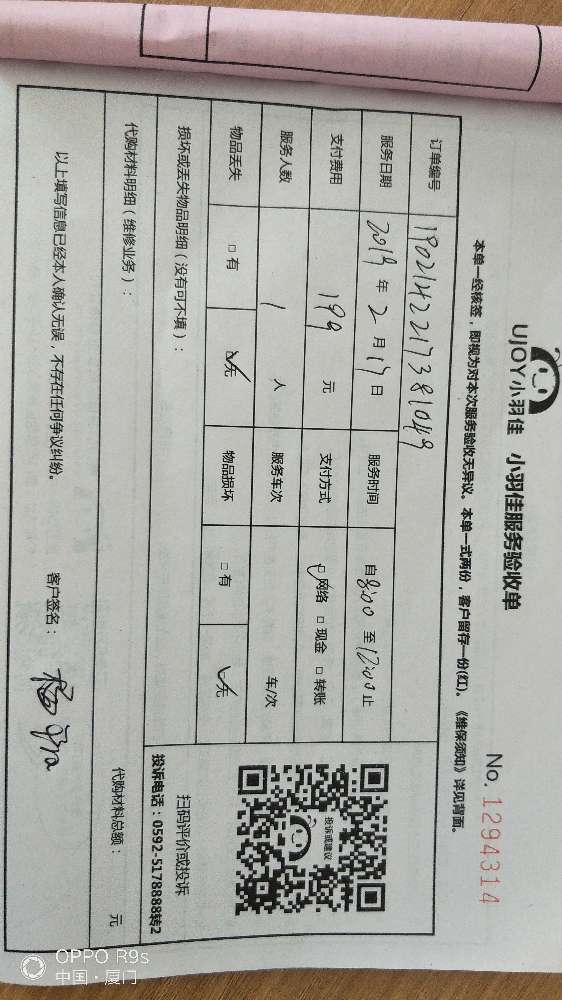 UJOY小羽佳 小羽佳服务验收单
No. 1294314
本单一经核签，即视为对本次服务验收无异议。本单一式两份，客户留存一份(红)。《维保须知》详见背面。
订单编号 1902142217381049
服务日期 2019 年 2 月 17 日 服务时间 自 8:00 至 12:00 止
支付费用 199 元 支付方式 □ 网络 □ 现金 □ 转账
服务人数 1 人 服务车次 车/次
物品丢失 □ 有 □ 无 物品损坏 □ 有 □ 无
投诉或建议
扫码评价或投诉
投诉电话：0592-5178888转2
损坏或丢失物品明细（没有可不填）：
代购材料明细（维修业务）： 代购材料总额： 元
以上填写信息已经本人确认无误，不存在任何争议纠纷。 客户签名：
OPPO R9s
中国·厦门